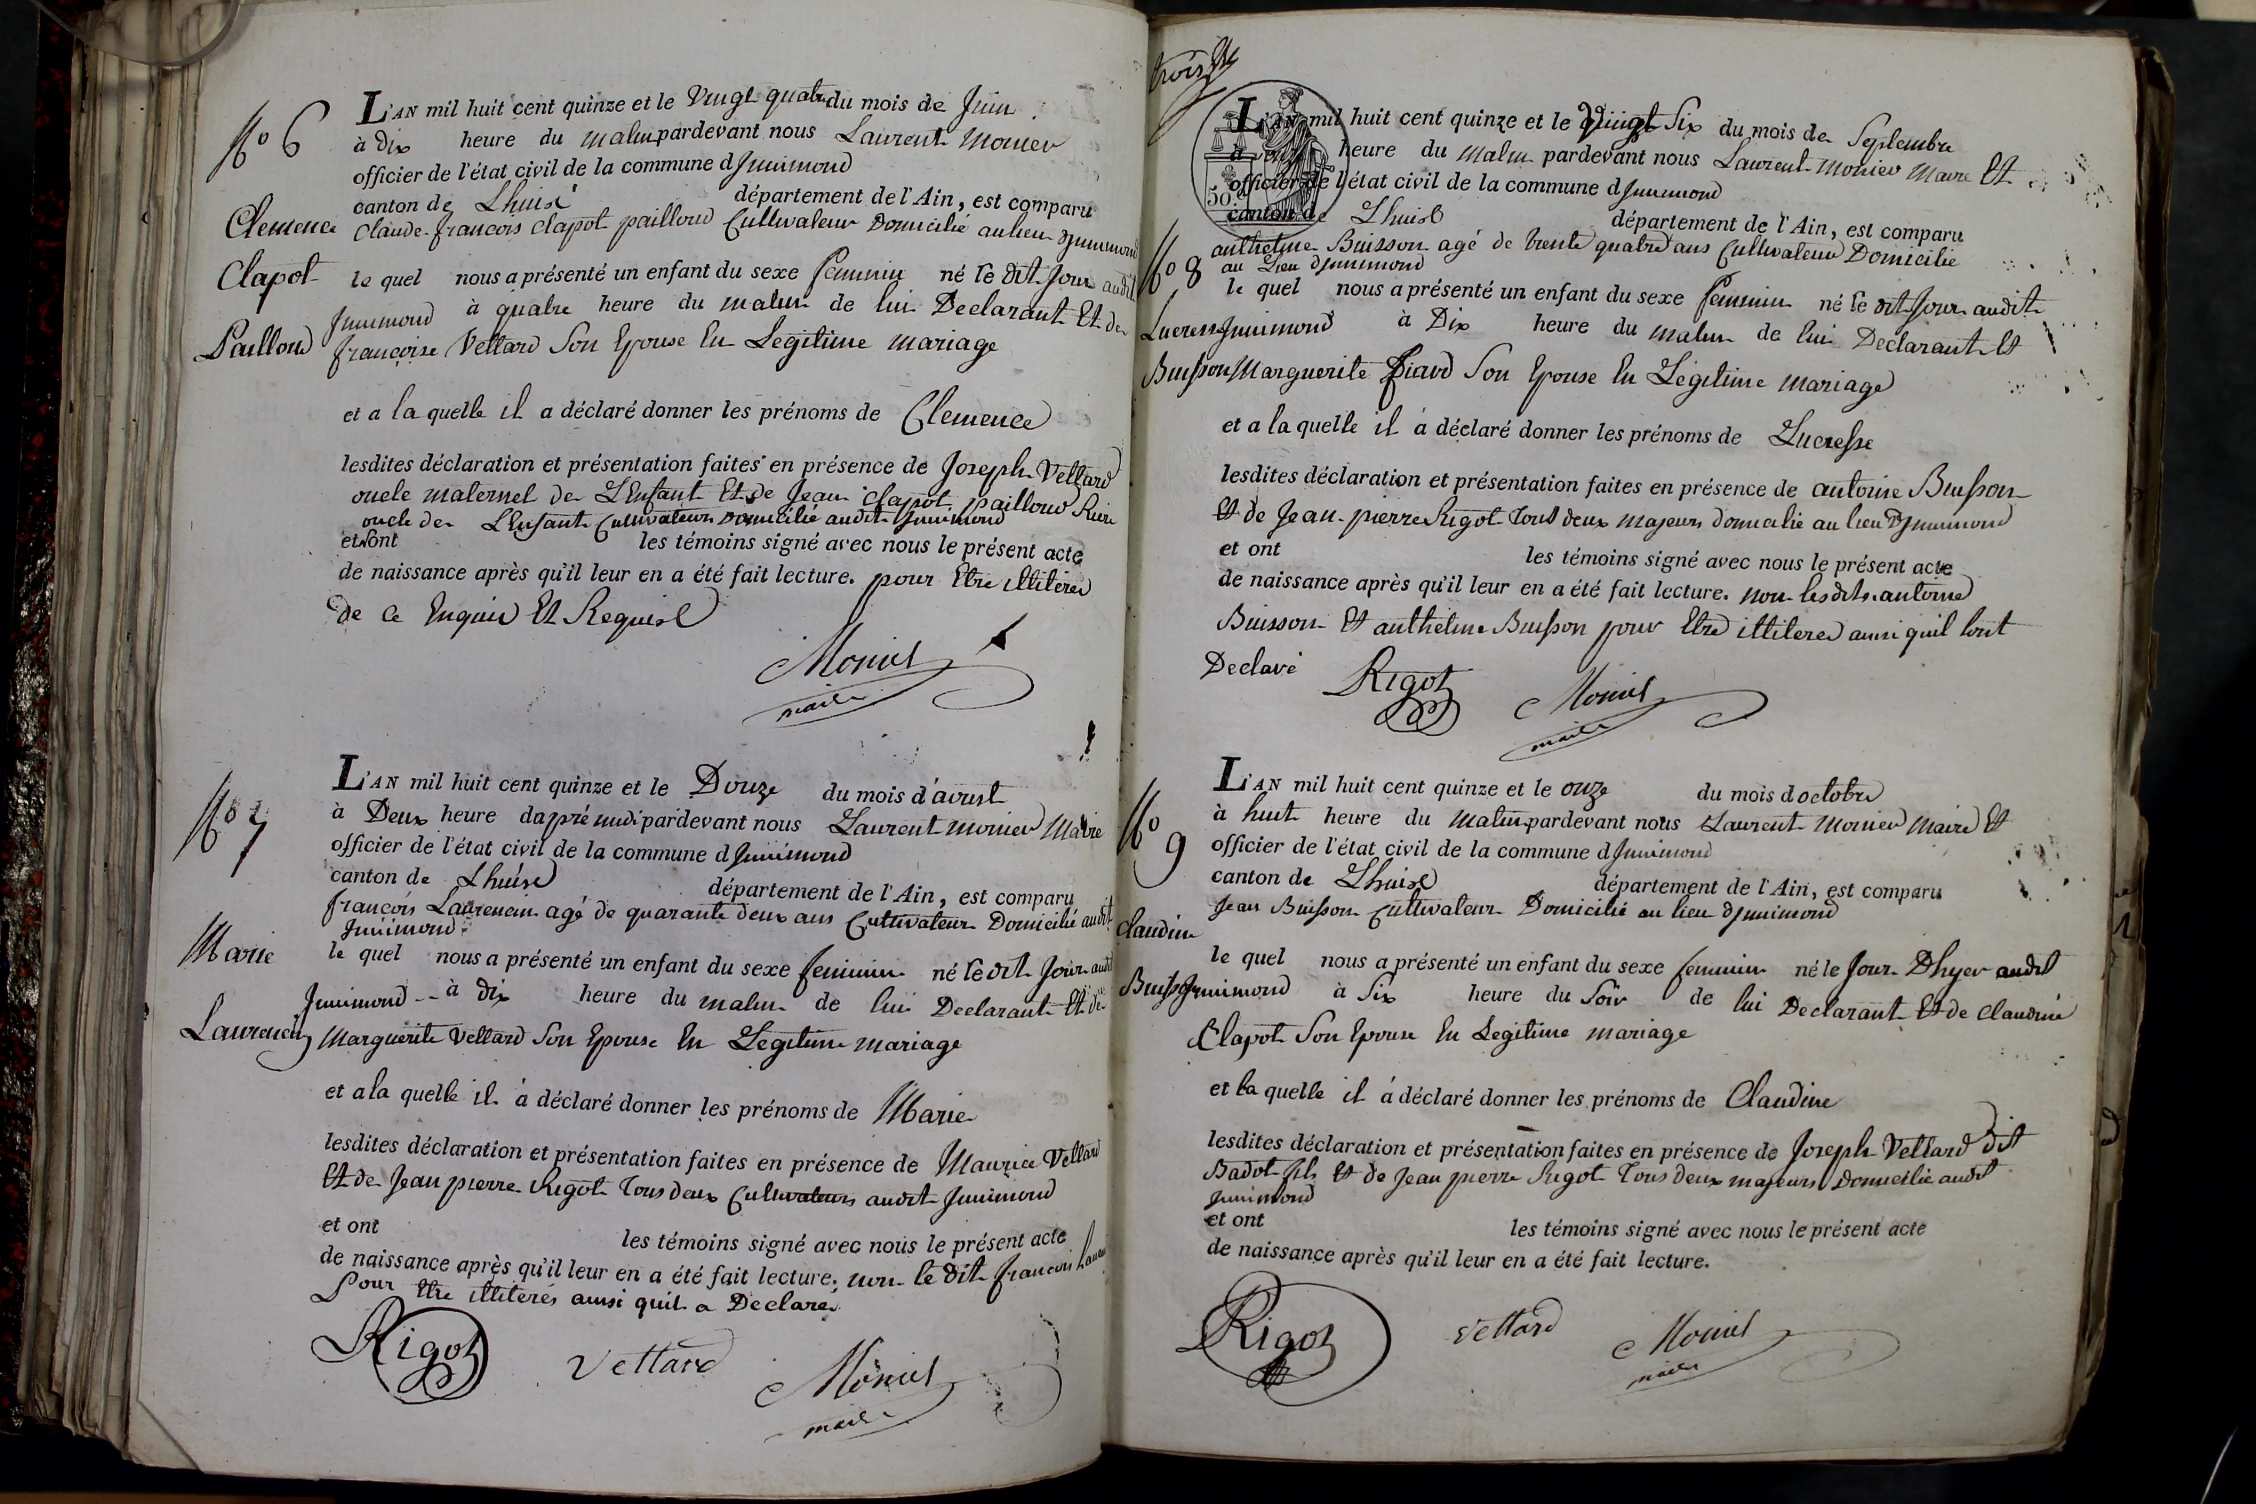 No 6
Clemence
Clapot
Pailloud
L'AN mil huit cent quinze et le Vingt quatre du mois de Juin
à dix heure du matin pardevant nous Laurent Monier
officier de l'état civil de la commune d Jnnimond
canton de Lhuis département de l'Ain, est comparu
Claude-francois Clapot pailloud Cultivateur Domicilié au lieu dJnnimond
le quel nous a présenté un enfant du sexe feminin né le dit Jour audit
Jnnimond à quatre heure du matin de lui Declarant Et de
françoise Vettard Son Epouse En Legitime mariage
et a la quelle il a déclaré donner les prénoms de Clemence
lesdites déclaration et présentation faites en présence de Joseph Vettard
oncle maternel de L'Enfant Et de Jean Clapot pailloud
oncle de L'Enfant Cultivateurs Domicilié audit Jnnimond
et ont les témoins signé avec nous le présent acte
de naissance après qu'il leur en a été fait lecture. pour Etre illiteres
de ce Enquis Et Requist
Monier
maire
No 7
Marie
Laurencin
L'AN mil huit cent quinze et le Douze du mois d'aoust
à Deux heure d'apré midi pardevant nous Laurent monier Maire
officier de l'état civil de la commune d Jnnimond
canton de Lhuis département de l'Ain, est comparu
françois Laurencin agé de quarante deux ans Cultivateur Domicilié audit
Jnnimond
le quel nous a présenté un enfant du sexe feminin né le dit Jour audit
Jnnimond -- à dix heure du matin de lui Declarant Et de
Marguerite Vettard Son Epouse En Legitime mariage
et a la quelle il à déclaré donner les prénoms de Marie
lesdites déclaration et présentation faites en présence de Maurice Vettard
Et de Jean pierre Rigot Tous deux Cultivateurs audit Jnnimond
et ont les témoins signé avec nous le présent acte
de naissance après qu'il leur en a été fait lecture. non le dit francois
Pour Etre illiterés ainsi quil a Declaré
Rigot Vettard Monier
maire
trois
50
No 8
Lucresse
Buisson
L'AN mil huit cent quinze et le Vingt Six du mois de Septembre
à heure du matin pardevant nous Laurent Monier Maire Et
officier de l'état civil de la commune d Jnnimond
canton de Lhuis département de l'Ain, est comparu
anthelme Buisson agé de trente quatre ans Cultivateur Domicilié
au Lieu dJnnimond
le quel nous a présenté un enfant du sexe feminin né le dit Jour audit
Jnnimond à Dix heure du matin de lui Declarant Et
Marguerite Son Epouse En Legitime mariage
et a la quelle il à déclaré donner les prénoms de Lucresse
lesdites déclaration et présentation faites en présence de antoine Buisson
Et de Jean-pierre Rigot Tous deux majeurs domicilié au lieu dJnnimond
et ont les témoins signé avec nous le présent acte
de naissance après qu'il leur en a été fait lecture. non lesdits antoine
Buisson Et anthelme Buisson pour Etre illiteres ainsi quil lont
Declaré
Rigot Monier
maire
No 9
Claudine
Buisson
L'AN mil huit cent quinze et le onze du mois doctobre
à huit heure du Matin pardevant nous Laurent Monier Maire Et
officier de l'état civil de la commune d Jnnimond
canton de Lhuis département de l'Ain, est comparu
Jean Buisson Cultivateur Domicilié au lieu dJnnimond
le quel nous a présenté un enfant du sexe feminin né le Jour Dhyer audit
Jnnimond à Six heure du Soir de lui Declarant Et de Claudine
Clapot Son Epouse En Legitime mariage
et la quelle il à déclaré donner les prénoms de Claudine
lesdites déclaration et présentation faites en présence de Joseph Vettard dit
Badot fils Et de Jean pierre Rigot Tous deux majeurs Domicilié audit
Jnnimond
et ont les témoins signé avec nous le présent acte
de naissance après qu'il leur en a été fait lecture.
Rigot Vettard Monier
maire